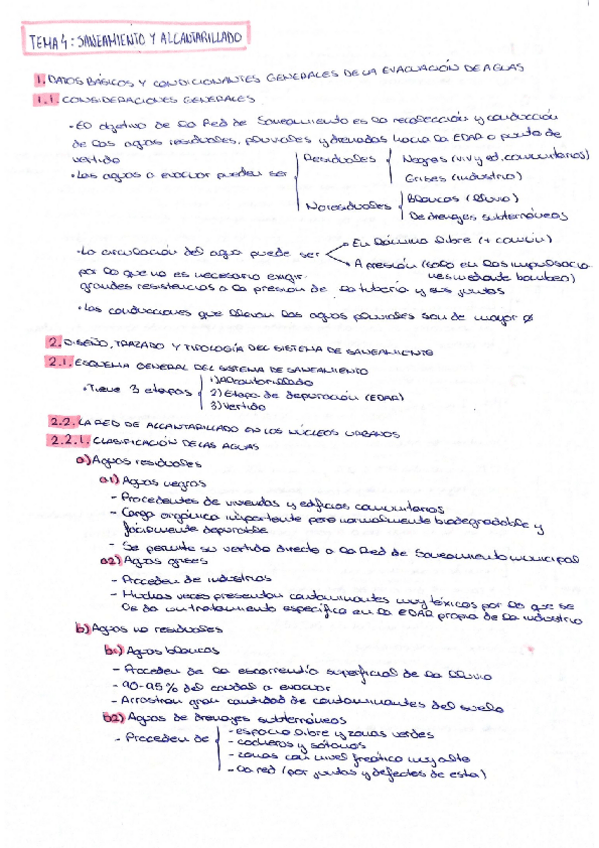 TEMA 4: SANEAMIENTO Y ALCANTARILLADO
1. DATOS BÁSICOS Y CONDICIONANTES GENERALES DE LA EVACUACIÓN DE AGUAS
1.1. CONSIDERACIONES GENERALES
· El objetivo de la Red de Saneamiento es la recolección y conducción
de las aguas residuales, pluviales y drenadas hacia la EDAR o punto de
vertido
· Las aguas a evacuar pueden ser
Residuales
Negras (viv y ed. comunitarios)
Grises (industria)
No residuales
Blancas (lluvia)
De drenajes subterráneos
· La circulación del agua puede ser
En lámina libre (+ común)
A presión (solo en las impulsiones mediante bombeo)
por lo que no es necesario exigir
grandes resistencias a la presión de la tubería y sus juntas
· Las conducciones que llevan las aguas pluviales son de mayor ø
2. DISEÑO, TRAZADO Y TIPOLOGÍA DEL SISTEMA DE SANEAMIENTO
2.1. ESQUEMA GENERAL DEL SISTEMA DE SANEAMIENTO
· Tiene 3 etapas
1) Alcantarillado
2) Etapa de depuración (EDAR)
3) Vertido
2.2. LA RED DE ALCANTARILLADO EN LOS NÚCLEOS URBANOS
2.2.1. CLASIFICACIÓN DE LAS AGUAS
a) Aguas residuales
a1) Aguas negras
- Procedentes de viviendas y edificios comunitarios
- Carga orgánica importante pero normalmente biodegradable y
fácilmente depurable
- Se permite su vertido directo a la Red de Saneamiento municipal
a2) Aguas grises
- Proceden de industrias
- Muchas veces presentan contaminantes muy tóxicos por lo que se
les da un tratamiento específico en la EDAR propia de la industria
b) Aguas no residuales
b1) Aguas blancas
- Proceden de la escorrentía superficial de la lluvia
- 90-95% del caudal a evacuar
- Arrastran gran cantidad de contaminantes del suelo
b2) Aguas de drenajes subterráneos
- Proceden de
- espacio libre y zonas verdes
- cocheras y sótanos
- zonas con nivel freático muy alto
- la red (por juntas y defectos de esta)